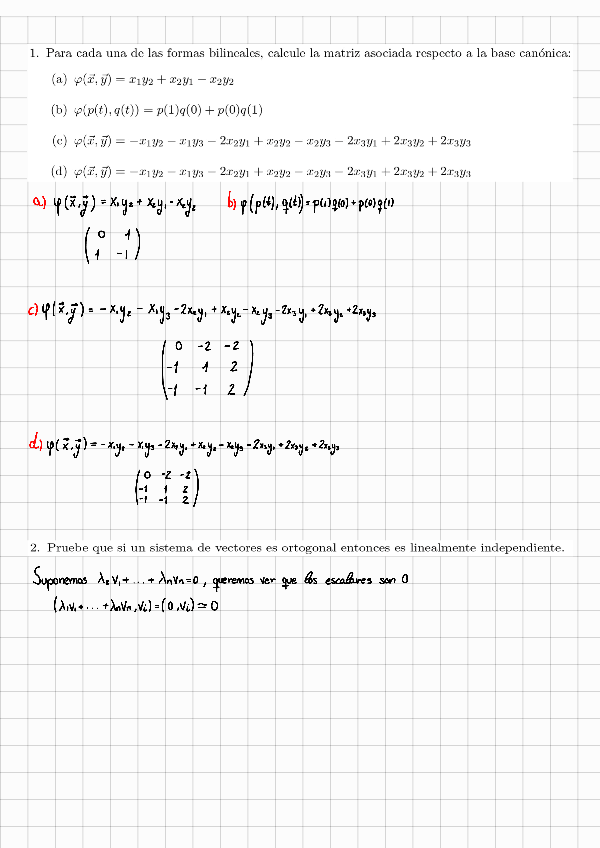 1. Para cada una de las formas bilineales, calcule la matriz asociada respecto a la base canónica:
(a) φ(x⃗, y⃗) = x₁y₂ + x₂y₁ − x₂y₂
(b) φ(p(t), q(t)) = p(1)q(0) + p(0)q(1)
(c) φ(x⃗, y⃗) = −x₁y₂ − x₁y₃ − 2x₂y₁ + x₂y₂ − x₂y₃ − 2x₃y₁ + 2x₃y₂ + 2x₃y₃
(d) φ(x⃗, y⃗) = −x₁y₂ − x₁y₃ − 2x₂y₁ + x₂y₂ − x₂y₃ − 2x₃y₁ + 2x₃y₂ + 2x₃y₃
a) φ(x⃗, y⃗) = x₁y₂ + x₂y₁ - x₂y₂ b) φ(p(t), q(t)) = p(1)q(0) + p(0)q(1)
0 1
1 -1
c) φ(x⃗, y⃗) = - x₁y₂ - x₁y₃ - 2x₂y₁ + x₂y₂ - x₂y₃ - 2x₃y₁ + 2x₃y₂ + 2x₃y₃
0 -2 -2
-1 1 2
-1 -1 2
d) φ(x⃗, y⃗) = - x₁y₂ - x₁y₃ - 2x₂y₁ + x₂y₂ - x₂y₃ - 2x₃y₁ + 2x₃y₂ + 2x₃y₃
0 -2 -2
-1 1 2
-1 -1 2
2. Pruebe que si un sistema de vectores es ortogonal entonces es linealmente independiente.
Suponemos λ₁v₁ + ... + λₙvₙ = 0, queremos ver que los escalares son 0
(λ₁v₁ + ... + λₙvₙ, vᵢ) = (0, vᵢ) = 0